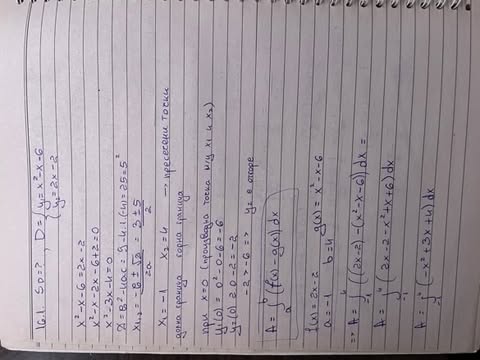 16.1. S_D=? , D = { y₁=x²-x-6
y₂=2x-2
x²-x-6=2x-2
x²-x-2x-6+2=0
x²-3x-4=0
D=b²-4ac=9-4.1.(-4)=25=5²
x₁,₂ = (-b±√D)/2a = (3±5)/2
x₁=-1 x₂=4 → пресечени точки
долна граница горна граница
при x=0 (произволна точка м/у x₁ и x₂)
y₁(0)=0²-0-6=-6
y₂(0) 2.0-2=-2
-2>-6 => y₂ е отгоре
A = ∫ₐᵇ (f(x)-g(x))dx
f(x)=2x-2 g(x)=x²-x-6
a=-1 b=4
=> A = ∫₋₁⁴ ((2x-2)-(x²-x-6))dx =
A = ∫₋₁⁴ (2x-2-x²+x+6)dx
A = ∫₋₁⁴ (-x²+3x+4)dx